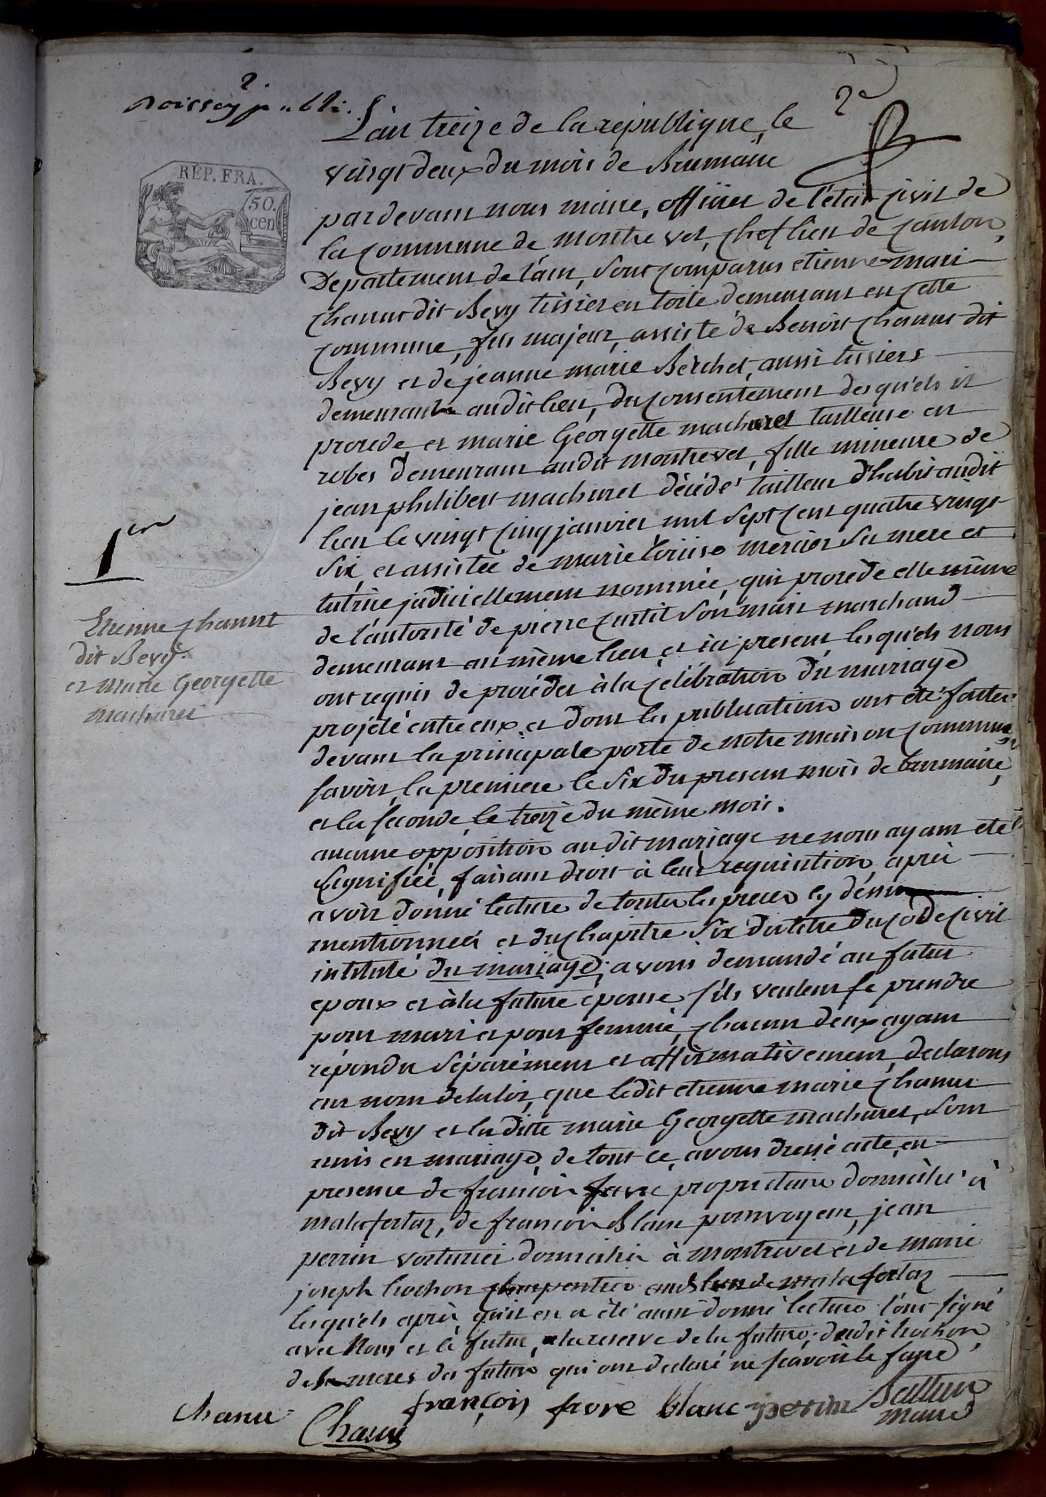 2.
2e
L'an treize de la république, le
vingt deux du mois de Brumaire
RÉP. FRA.
50
cen
par devant nous maire, officier de l'état civil de
la commune de montrevel, chef lieu de canton,
Departement de l'ain, sont comparus etienne mari
chanut dit Bevy tissier en toile demeurant en cette
commune, fils majeur, assisté de Benoit chanut dit
Bevy et de jeanne marie Berchet, aussi tissiers
demeurants audit lieu, du consentement desquels il
procede, et marie Georgette machuret tailleuse en
robes demeurant audit montrevel, fille mineure de
jean philibert machuret décédé tailleur d'habit audit
lieu le vingt cinq janvier mil sept cent quatre vingt
six, et assistée de marie Loüise mercier sa mere et
tutrice judiciellement nommée, qui procede elle même
de l'autorité de pierre curtil son mari marchand
demeurant au même lieu, et ici present, lesquels nous
ont requis de procéder à la célébration du mariage
projété entre eux et dont les publications ont été faites
devant la principale porte de notre maison commune
savoir, la premiere le six du present mois de brumaire,
et la seconde, le treize du même mois.
aucune opposition audit mariage ne nous ayant été
signifiée, faisant droit à leur requisition, après
avoir donné lecture de toutes les pieces cy dessus
mentionnées et du chapitre six du titre du code civil
intitulé du mariage, avons demandé au futur
epoux et à la future epouse s'ils veulent se prendre
pour mari et pour femme, chacun d'eux ayant
répondu séparément et affirmativement, declarons
au nom de la loi, que ledit etienne marie chanut
dit Bevy et la dite marie Georgette machuret, sont
unis en mariage, de tout ce, avons dressé acte, en
presence de françois favre proprietaire domicilié à
malafertaz, de françois Blanc pourvoyeur, jean
perrin voiturier domiciliés à montrevel et de marie
joseph hochon charpentier audit lieu de malafortaz
lesquels après qu'il en a été aussi donné lecture l'ont signé
avec Nous et le futur, à la reserve de la future, dudit hochon
des meres des futurs qui ont declaré ne sçavoir le faire,
1er
Etienne chanut
dit Bevy
et marie Georgette
machuret
chanu
Chanu
françois favre blanc perrin
maire